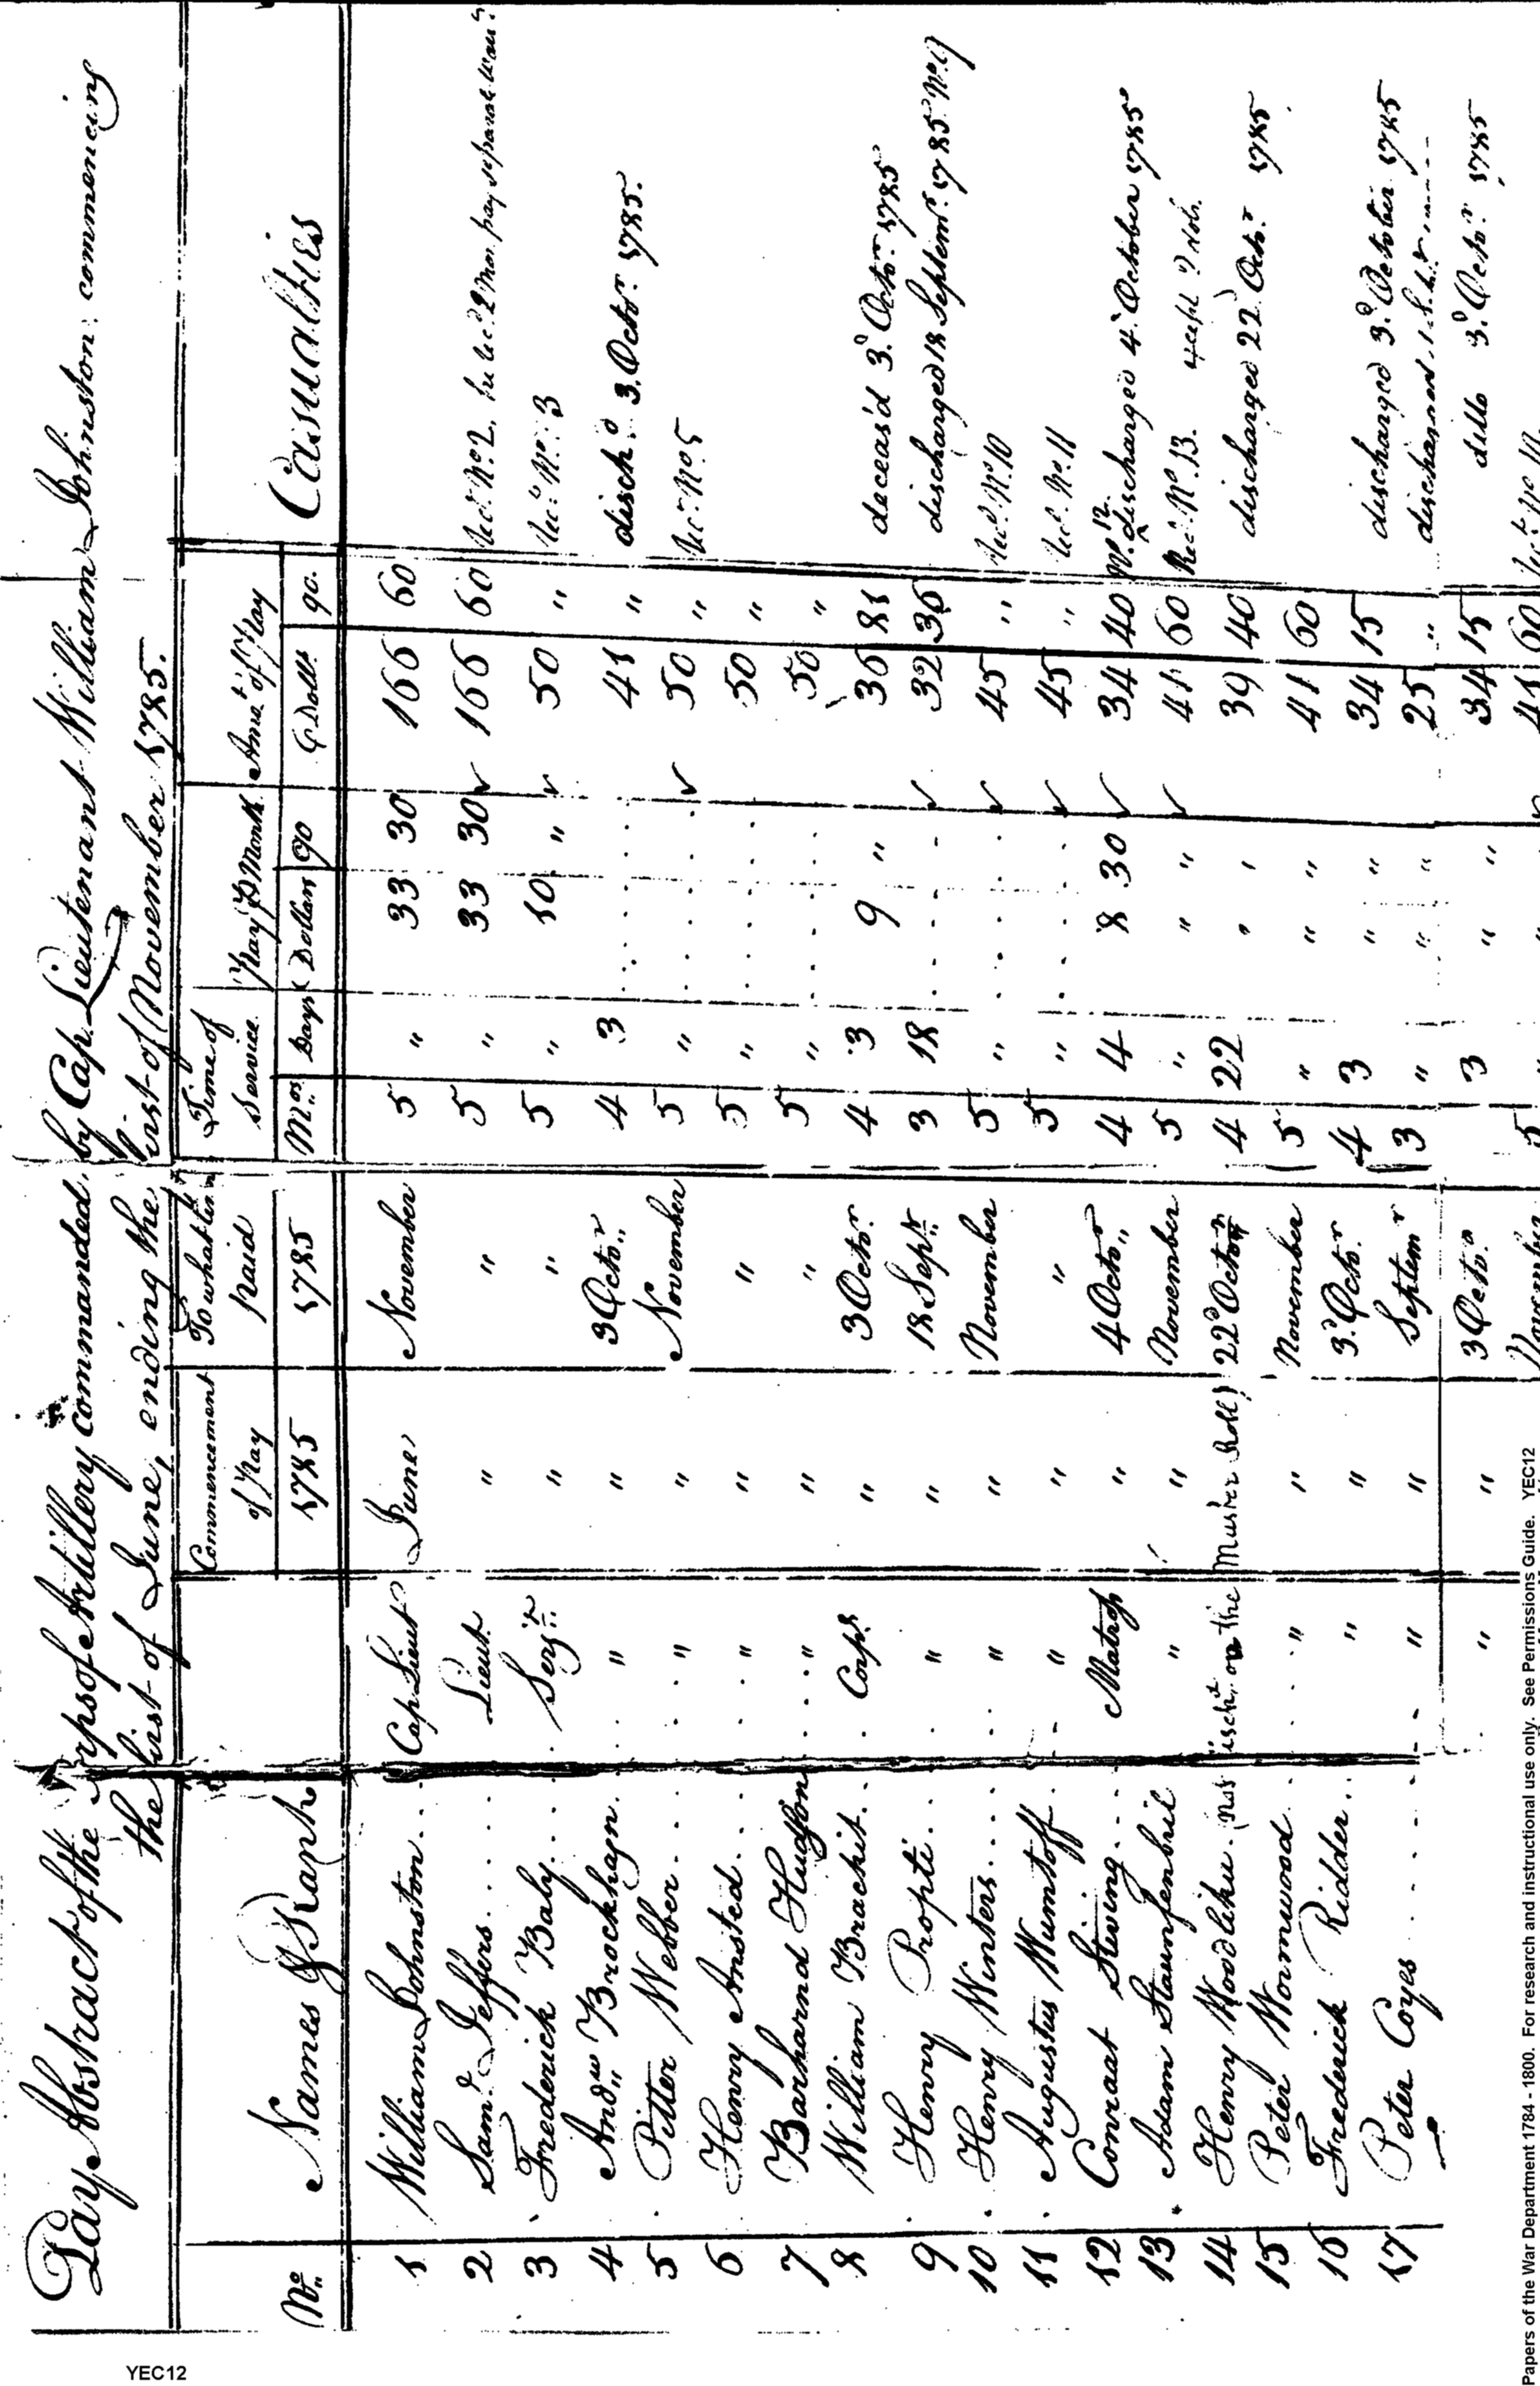 Pay Abstract of the Corps of Artillery commanded by Cap. Lieutenant William Johnston: commencing
the first of June, ending the first of November 1785.
No. Names & Rank Commencement of Pay 1785 To what time paid 1785 Time of Service Mos. Days Pay P Month Dollars 90 Amot. of Pay Dolls. 90. Casualties
1 William Johnston... Cap Lieut June November 5 " 33 30 166 60
2 Saml. Jeffers..... Lieut. " " 5 " 33 30 166 60 Recd. No. 2.
3 Frederick Baly... Sergt. " " 5 " 10 " 50 " Recd. No. 3
4 Andw. Brockhayn. " " 3 Octor. 4 3 41 " dischd. 3. Octor. 1785.
5 Pitter Webber.... " " November 5 " 50 " Recd. No. 5
6 Henry Ansted... " " " 5 " 50 "
7 Barharnd Hudson " " " 5 " 50 "
8 William Brachit.. Corpl. " 3 Octor. 4 3 9 " 36 81 deceas'd 3d. Octor. 1785
9 Henry Propti... " " 18 Sept. 3 18 32 36 discharged 18 Septemr. 1785 No. 9
10 Henry Winters.... " " November 5 " 45 " Recd. No. 10
11 Augustus Wumstoff. " " " 5 " 45 " Recd. No. 11
12 Conraat Stewing... Matross " 4 Octor. 4 4 8 30 34 40 No. 12. discharged 4. October 1785
13 Adam Staunfenbiel " " November 5 " " " 41 60 Recd. No. 13.
14 Henry Woodliku. (not on the Muster Roll) 22d Octor 4 22 " " 39 40 discharged 22 Octor. 1785
15 Peter Wormwood. " " November 5 " " " 41 60
16 Frederick Ridder.. " " 3d. Octor. 4 3 " " 34 15 discharged 3d. October 1785
17 Peter Coyes..... " " Septemr 3 " " " 25 " discharged
" " 3 Octor. 3 " " 34 15 ditto 3d. Octor. 1785
November 5 " " 41 60
Papers of the War Department 1784 - 1800. For research and instructional use only. See Permissions Guide. YEC12
YEC12